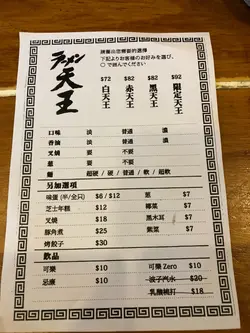 ラーメン天王
請圈出您需要的選擇
下記よりお客様のお好みを選び、
○で囲んでください
$72 $82 $82 $92
白天王 赤天王 黒天王 限定天王
口味 淡 普通 濃
香油 淡 普通 濃
叉燒 要 不要
蔥 要 不要
麵 超硬 / 硬 / 普通 / 軟 / 超軟
另加選項
味蛋 (半/全只) $6 / $12 蔥 $7
芝士年糕 $12 椰菜 $7
叉燒 $18 黑木耳 $7
豚角煮 $25 紫菜 $7
烤餃子 $30
飲品
可樂 $10 可樂 Zero $10
忌廉 $10 波子汽水 $20
乳酸梳打 $18